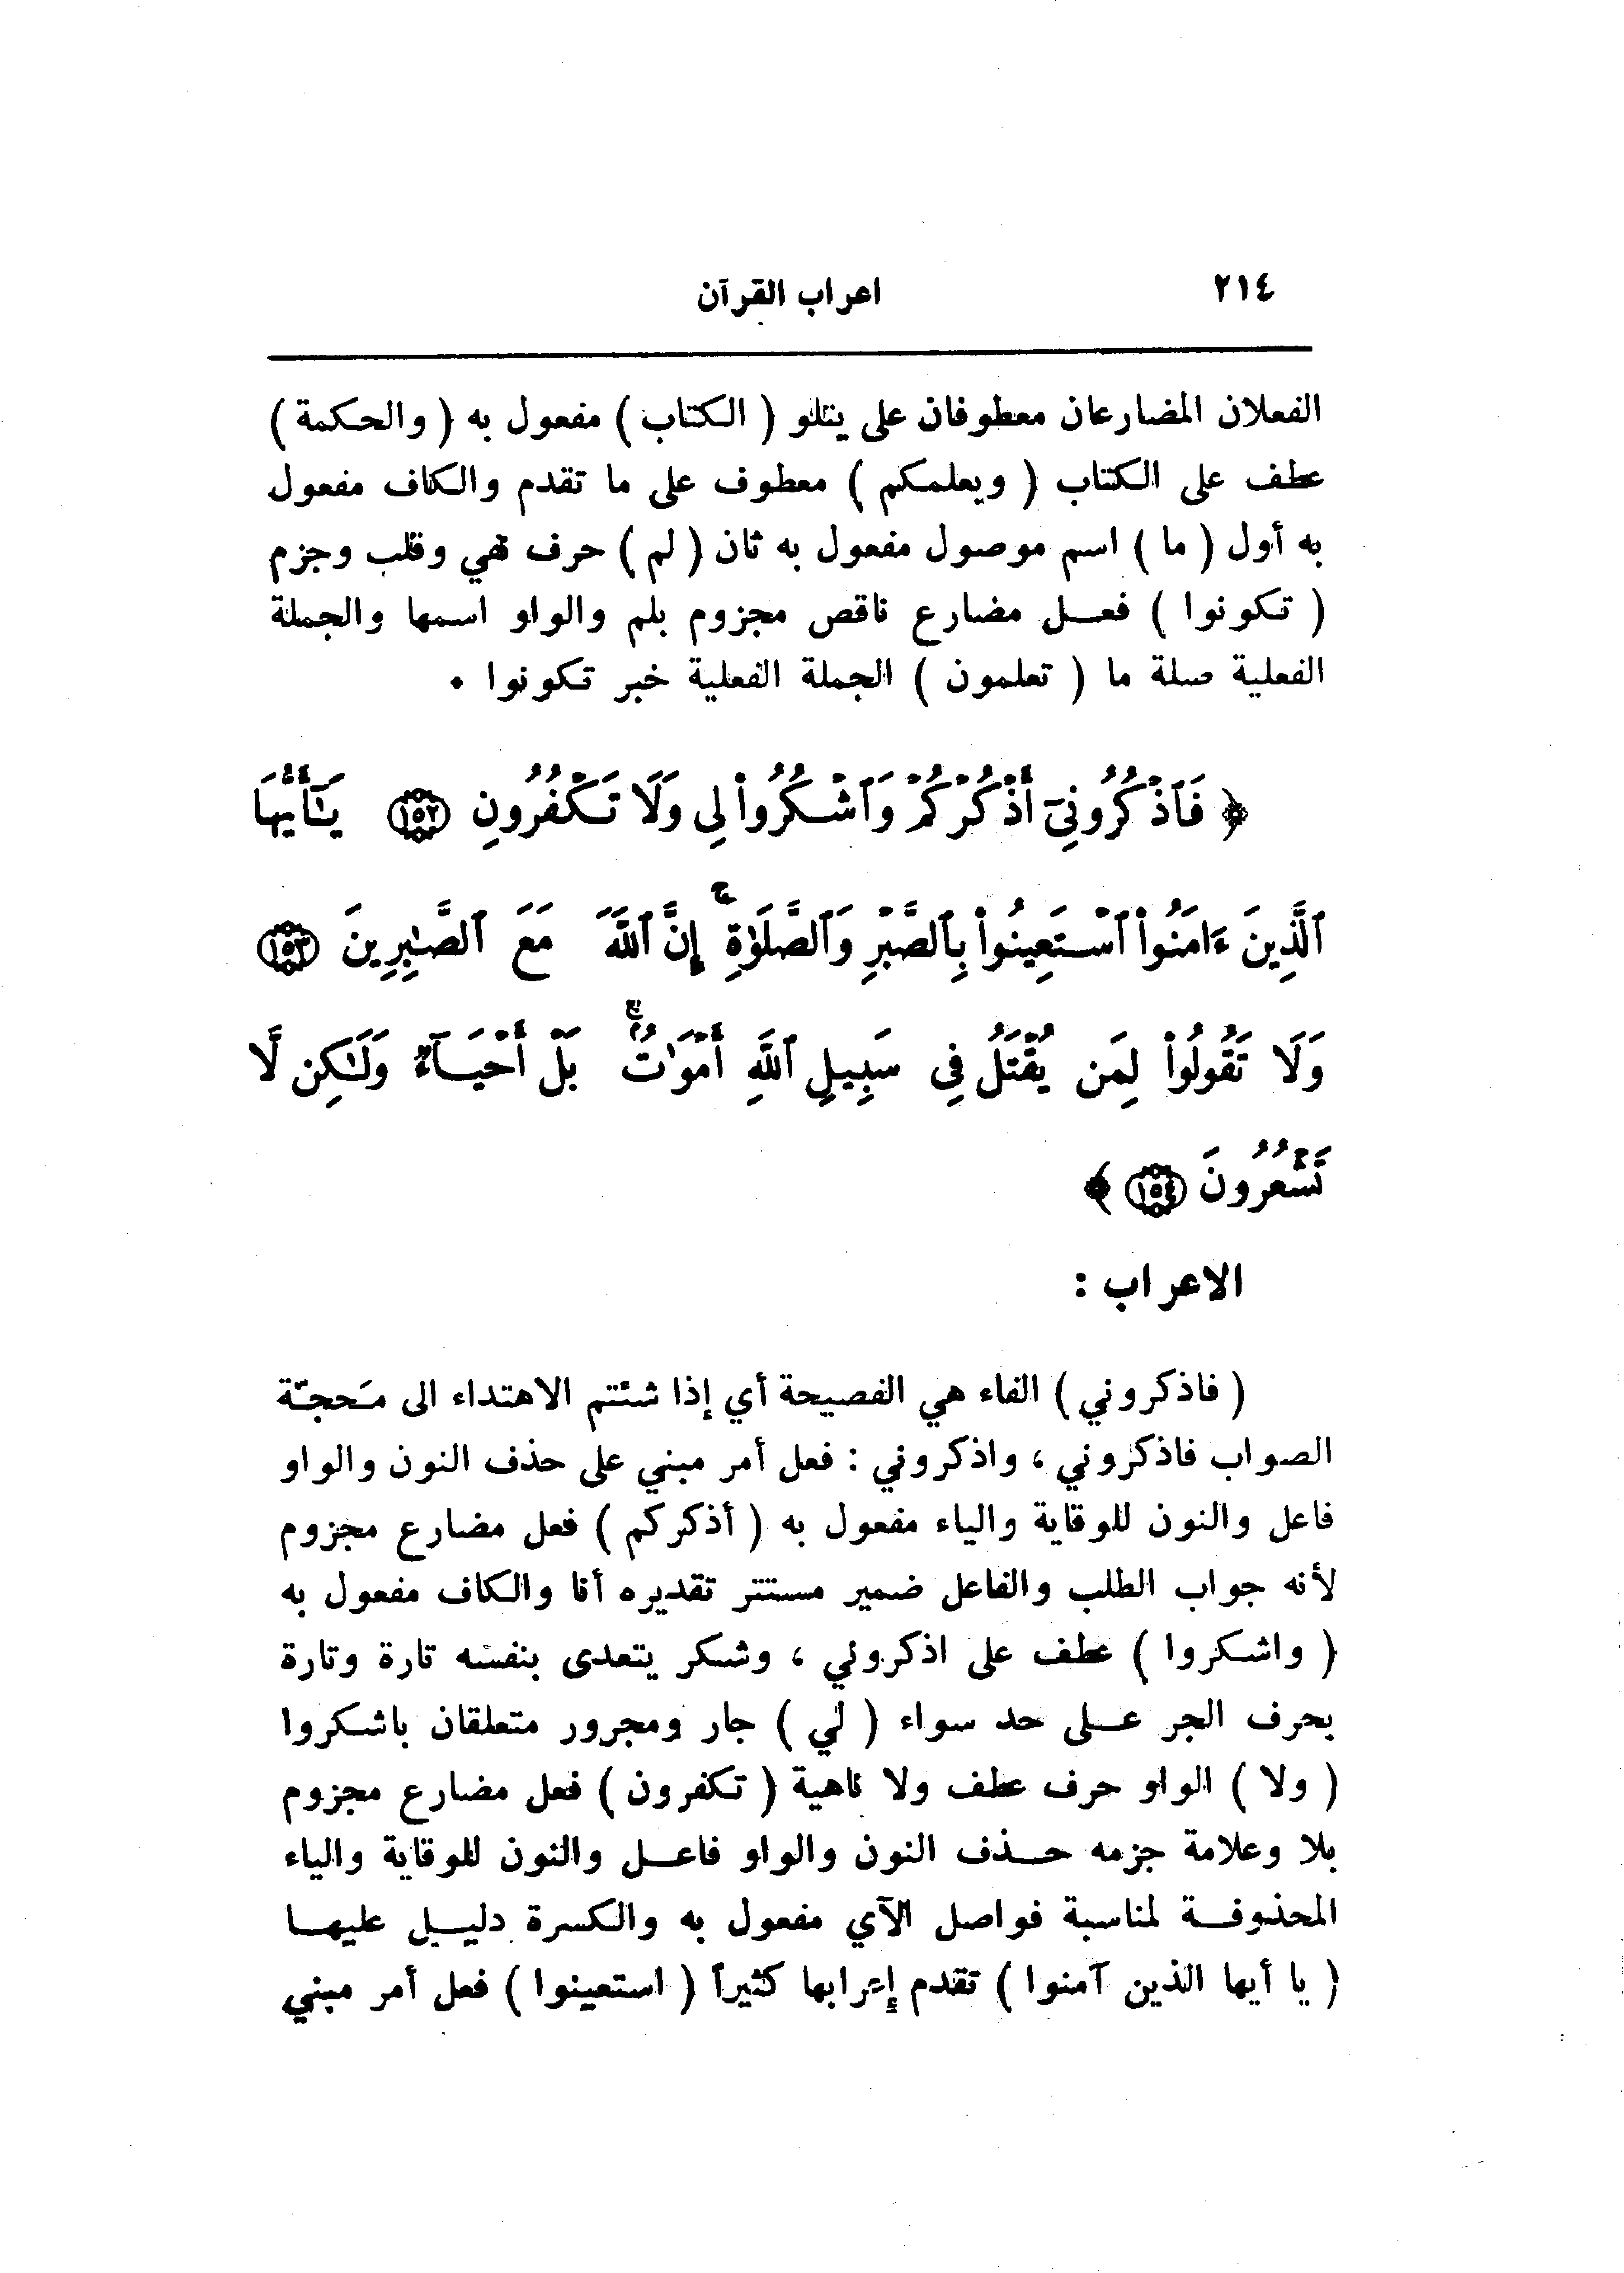 ٢١٤
اعراب القرآن
الفعلان المضارعان معطوفان على يتلو ( الكتاب ) مفعول به ( والحكمة )
عطف على الكتاب ( ويعلمكم ) معطوف على ما تقدم والكاف مفعول
به أول ( ما ) اسم موصول مفعول به ثان ( لم ) حرف نفي وقلب وجزم
( تكونوا ) فعل مضارع ناقص مجزوم بلم والواو اسمها والجملة
الفعلية صلة ما ( تعلمون ) الجملة الفعلية خبر تكونوا .
﴿ فَٱذْكُرُونِىٓ أَذْكُرْكُمْ وَٱشْكُرُوا۟ لِى وَلَا تَكْفُرُونِ ١٥٢ يَـٰٓأَيُّهَا
ٱلَّذِينَ ءَامَنُوا۟ ٱسْتَعِينُوا۟ بِٱلصَّبْرِ وَٱلصَّلَوٰةِ ۚ إِنَّ ٱللَّهَ مَعَ ٱلصَّـٰبِرِينَ ١٥٣
وَلَا تَقُولُوا۟ لِمَن يُقْتَلُ فِى سَبِيلِ ٱللَّهِ أَمْوَٰتٌۢ ۚ بَلْ أَحْيَآءٌ وَلَـٰكِن لَّا
تَشْعُرُونَ ١٥٤ ﴾
الاعراب :
( فاذكروني ) الفاء هي الفصيحة أي إذا شئتم الاهتداء الى مَحجّة
الصواب فاذكروني ، واذكروني : فعل أمر مبني على حذف النون والواو
فاعل والنون للوقاية والياء مفعول به ( أذكركم ) فعل مضارع مجزوم
لأنه جواب الطلب والفاعل ضمير مستتر تقديره أنا والكاف مفعول به
( واشكروا ) عطف على اذكروني ، وشكر يتعدى بنفسه تارة وتارة
بحرف الجر على حد سواء ( لي ) جار ومجرور متعلقان باشكروا
( ولا ) الواو حرف عطف ولا ناهية ( تكفرون ) فعل مضارع مجزوم
بلا وعلامة جزمه حذف النون والواو فاعل والنون للوقاية والياء
المحذوفة لمناسبة فواصل الآي مفعول به والكسرة دليل عليها
( يا أيها الذين آمنوا ) تقدم إعرابها كثيراً ( استعينوا ) فعل أمر مبني